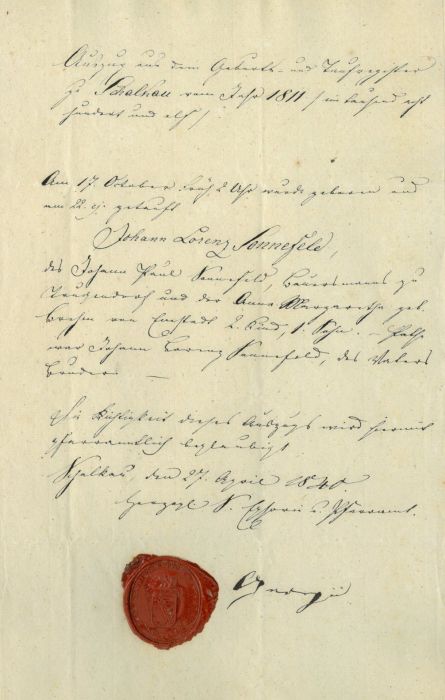 Auszug aus dem Geburts- und Taufregister
zu Schalkau vom Jahr 1811 / ein tausend acht
hundert und elf /.
Am 17. October früh 2 Uhr wurde geboren und
am 22. ej. getauft
Johann Lorenz Sonnefeld,
des Johann Paul Sonnefeld, Bauersmanns zu
und der Anna Margaretha geb.
Brehm von Emstadt 2. Kind, 1. Sohn. — Pathe
war Johann Lorenz Sonnefeld, des Vaters
Bruder. —
Die Richtigkeit dieses Auszugs wird hiermit
pfarramtlich beglaubigt
Schalkau, den 27. April 1840.
Herzogl. S. Ephorie u. Pfarramt.